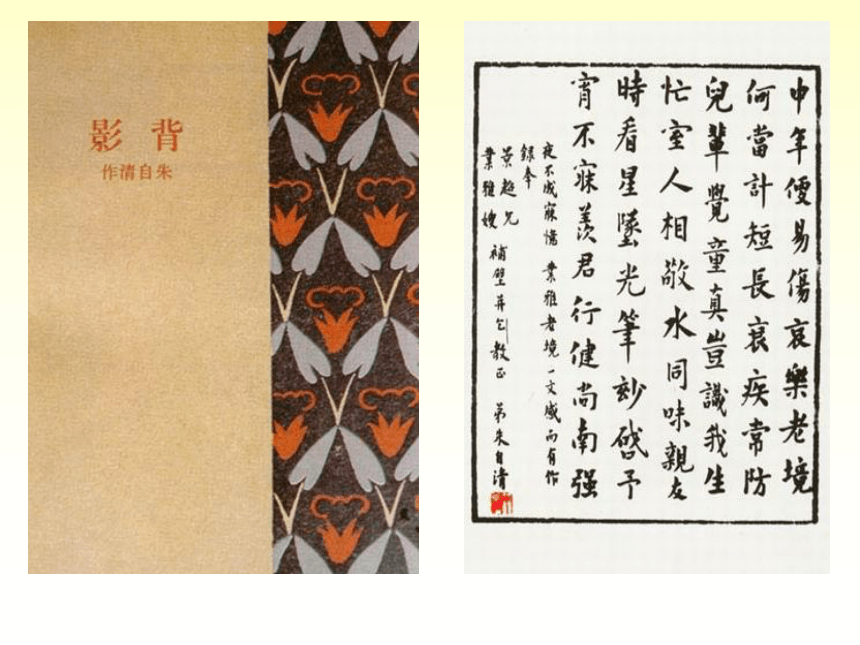 背影
朱自清作
中年便易傷哀樂老境
何當計短長衰疾常防
兒輩覺童真豈識我生
忙室人相敬水同味親友
時看星墜光筆妙啓予
宵不寐羨君行健尚南强
夜不成寐憶業雅老境一文感而有作
錄奉
景超兄
業雅嫂
補壁并乞教正 弟朱自清